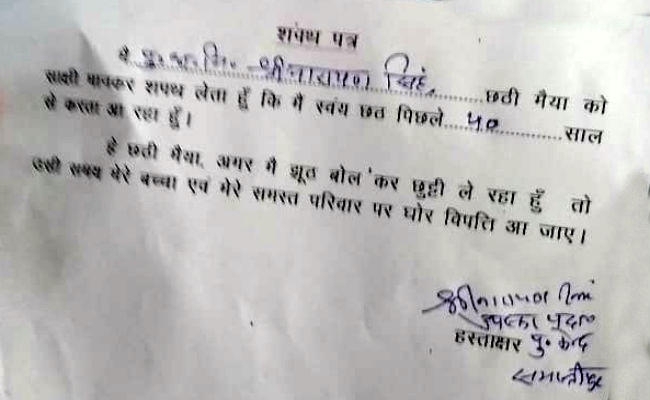 शपथ पत्र
मै पु.अ.नि. श्रीनारायण सिंह, छठी मैया को
साक्षी मानकर शपथ लेता हूँ कि मै स्वंय छठ पिछले 50 साल
से करता आ रहा हूँ।
हे छठी मैया, अगर मै झूठ बोल 'कर छुट्टी ले रहा हूँ तो
उसी समय मेरे बच्चा एवं मेरे समस्त परिवार पर घोर विपत्ति आ जाए।
श्रीनारायण सिंह
हस्ताक्षर पु० केन्द्र